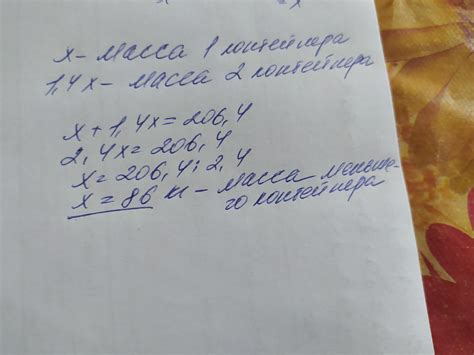 х - масса 1 контейнера
1,4х - масса 2 контейнера
х + 1,4х = 206,4
2,4х = 206,4
х = 206,4 : 2,4
х = 86 кг - масса меньше-
го контейнера